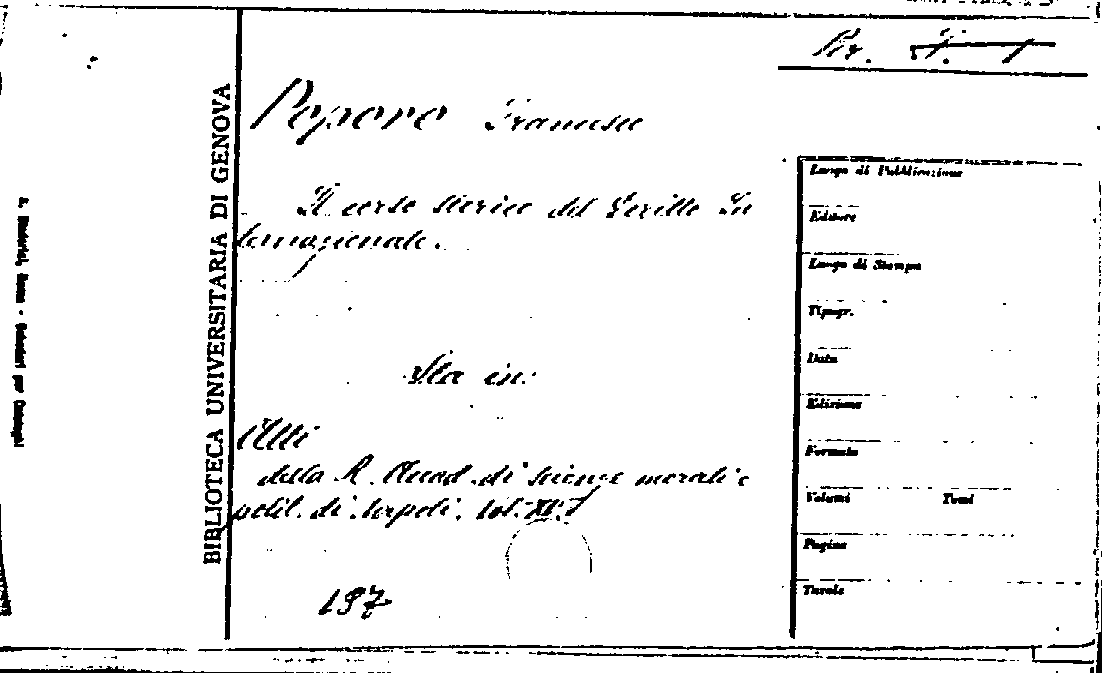 Riv.
Pepere Francesco
Il corso storico del Diritto In
ternazionale.
Sta in:
Atti
della R. Accad. di scienze morali e
polit. di Napoli. Vol. XV.
197
BIBLIOTECA UNIVERSITARIA DI GENOVA
Luogo di Pubblicazione
Editore
Luogo di Stampa
Tipogr.
Data
Edizione
Formato
Volumi Tomi
Pagine
Tavole